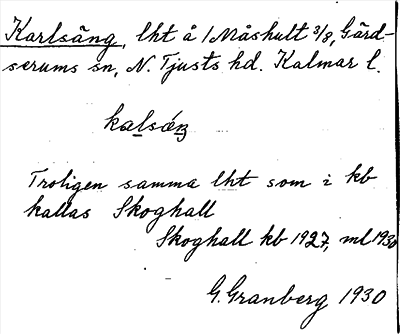 Karlsäng, lht å 1 Måshult 3/8, Gärd-
serums sn, N. Tjusts hd. Kalmar l.
kalsǽŋ
Troligen samma lht som i kb
kallas Skoghall
Skoghall kb 1927, ml 1930
G. Granberg 1930